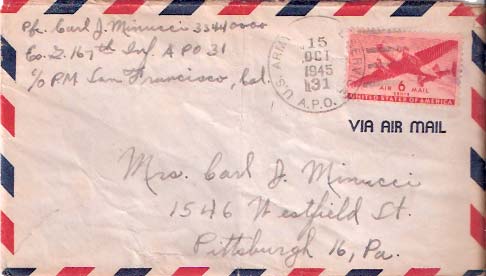 Pfc. Carl J. Minucci 33440000
Co. L. 167th Inf. A PO 31
c/o P.M. San Francisco, Cal.
U.S. ARMY
15
OCT
1945
31
A.P.O.
AIR 6 MAIL
CENTS
UNITED STATES OF AMERICA
VIA AIR MAIL
Mrs. Carl J. Minucci
1546 Westfield St.
Pittsburgh 16, Pa.